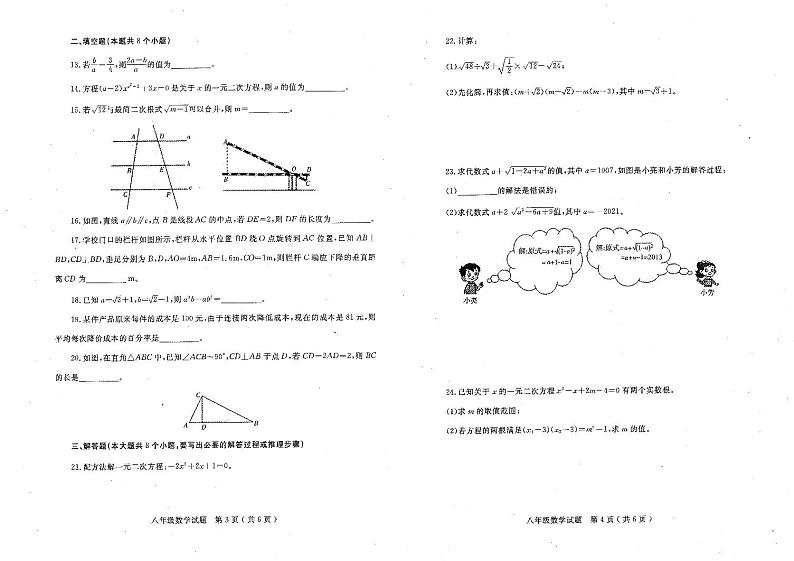 二、填空题(本题共 8 个小题)
13. 若 b/a=3/4,则 (2a-b)/a 的值为________。
14. 方程(a-2)x^(a²-2)+3x=0 是关于 x 的一元二次方程,则 a 的值为________。
15. 若√12与最简二次根式√(m-1)可以合并,则 m=________。
A D a
B E b
C F c
A
B O D
C
16. 如图,直线 a∥b∥c,点 B 是线段 AC 的中点,若 DE=2,则 DF 的长度为________。
17. 学校门口的栏杆如图所示,栏杆从水平位置 BD 绕 O 点旋转到 AC 位置,已知 AB⊥
BD,CD⊥BD,垂足分别为 B,D,AO=4m,AB=1.6m,CO=1m,则栏杆 C 端应下降的垂直距
离 CD 为________m。
18. 已知 a=√2+1,b=√2-1,则 a²b-ab²=________。
19. 某件产品原来每件的成本是 100 元,由于连接两次降低成本,现在的成本是 81 元,则
平均每次降价成本的百分率是________。
20. 如图,在直角△ABC 中,已知∠ACB=90°,CD⊥AB 于点 D,若 CD=2AD=2,则 BC
的长是________。
C
A D B
三、解答题(本大题共 8 个小题,要写出必要的解答过程或推理步骤)
21. 配方法解一元二次方程:-2x²+2x+1=0。
八年级数学试题 第 3 页(共 6 页)
22. 计算:
(1)√48÷√3+√(1/2)×√12-√24;
(2)先化简,再求值:(m+√2)(m-√2)-m(m-3),其中 m=√3+1。
23. 求代数式 a+√(1-2a+a²)的值,其中 a=1007,如图是小亮和小芳的解答过程:
(1)________的解法是错误的;
(2)求代数式 a+2√(a²-6a+9)值,其中 a=-2021。
解:原式=a+√(1-a)²
=a+1-a=1
解:原式=a+√(1-a)²
=a+a-1=2013
小亮
小芳
24. 已知关于 x 的一元二次方程 x²-x+2m-4=0 有两个实数根。
(1)求 m 的取值范围;
(2)若方程的两根满足(x₁-3)(x₂-3)=m²-1,求 m 的值。
八年级数学试题 第 4 页(共 6 页)